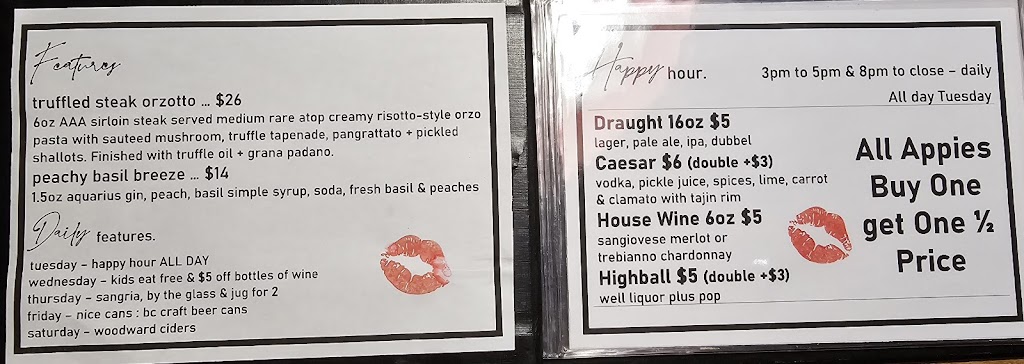 Features
truffled steak orzotto ... $26
6oz AAA sirloin steak served medium rare atop creamy risotto-style orzo
pasta with sauteed mushroom, truffle tapenade, pangrattato + pickled
shallots. Finished with truffle oil + grana padano.
peachy basil breeze ... $14
1.5oz aquarius gin, peach, basil simple syrup, soda, fresh basil & peaches
Daily features.
tuesday – happy hour ALL DAY
wednesday – kids eat free & $5 off bottles of wine
thursday – sangria, by the glass & jug for 2
friday – nice cans : bc craft beer cans
saturday – woodward ciders
Happy hour.
3pm to 5pm & 8pm to close – daily
All day Tuesday
Draught 16oz $5
lager, pale ale, ipa, dubbel
Caesar $6 (double +$3)
vodka, pickle juice, spices, lime, carrot
& clamato with tajin rim
House Wine 6oz $5
sangiovese merlot or
trebianno chardonnay
Highball $5 (double +$3)
well liquor plus pop
All Appies
Buy One
get One ½
Price